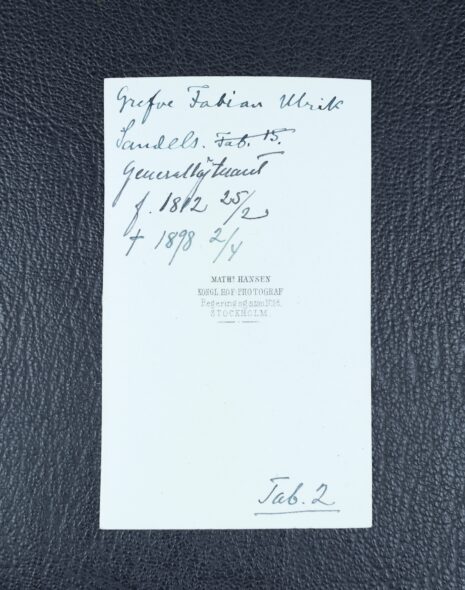 Grefve Fabian Ulrik
Sandels. Tab. 15.
Generallöjtnant
f. 1812 25/2
† 1898 2/4
MATHS HANSEN
KONGL. HOF-PHOTOGRAF
Regeringsgatan
STOCKHOLM.
Tab. 2